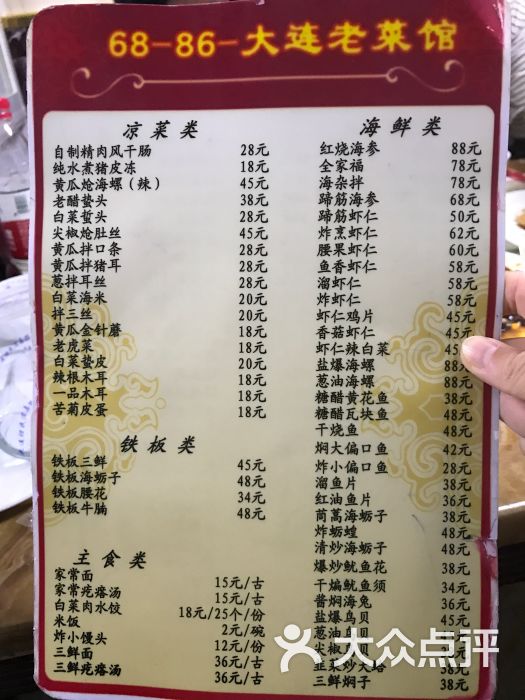 68-86-大连老菜馆
凉菜类
自制精肉风干肠 28元
纯水煮猪皮冻 18元
黄瓜炝海螺（辣） 45元
老醋蛰头 38元
白菜蜇头 28元
尖椒炝肚丝 45元
黄瓜拌口条 28元
黄瓜拌猪耳 28元
葱拌耳丝 28元
白菜海米 20元
拌三丝 20元
黄瓜金针蘑 18元
老虎菜 18元
白菜蛰皮 20元
辣根木耳 18元
一品木耳 18元
苦菊皮蛋 18元
铁板类
铁板三鲜 45元
铁板海蛎子 48元
铁板腰花 34元
铁板牛腩 48元
主食类
家常面 15元/古
家常疙瘩汤 15元/古
白菜肉水饺 18元/25个/份
米饭 2元/碗
炸小馒头 12元/份
三鲜面 36元/古
三鲜疙瘩汤 36元/古
海鲜类
红烧海参 88元
全家福 78元
海杂拌 78元
蹄筋海参 68元
蹄筋虾仁 50元
炸烹虾仁 62元
腰果虾仁 60元
鱼香虾仁 58元
溜虾仁 58元
炸虾仁 58元
虾仁鸡片 45元
香菇虾仁 45元
虾仁辣白菜 45
盐爆海螺 88元
葱油海螺 88元
糖醋黄花鱼 38元
糖醋瓦块鱼 48元
干烧鱼 48元
焖大偏口鱼 42元
炸小偏口鱼 28元
溜鱼片 38元
红油鱼片 36元
茼蒿海蛎子 38元
炸蛎蝗 48元
清炒海蛎子 48元
爆炒鱿鱼花 38元
干煸鱿鱼须 34元
酱焖海兔 36元
盐爆鸟贝 45元
葱油鸟
尖椒
韭菜炒
三鲜焖子 38元
大众点评